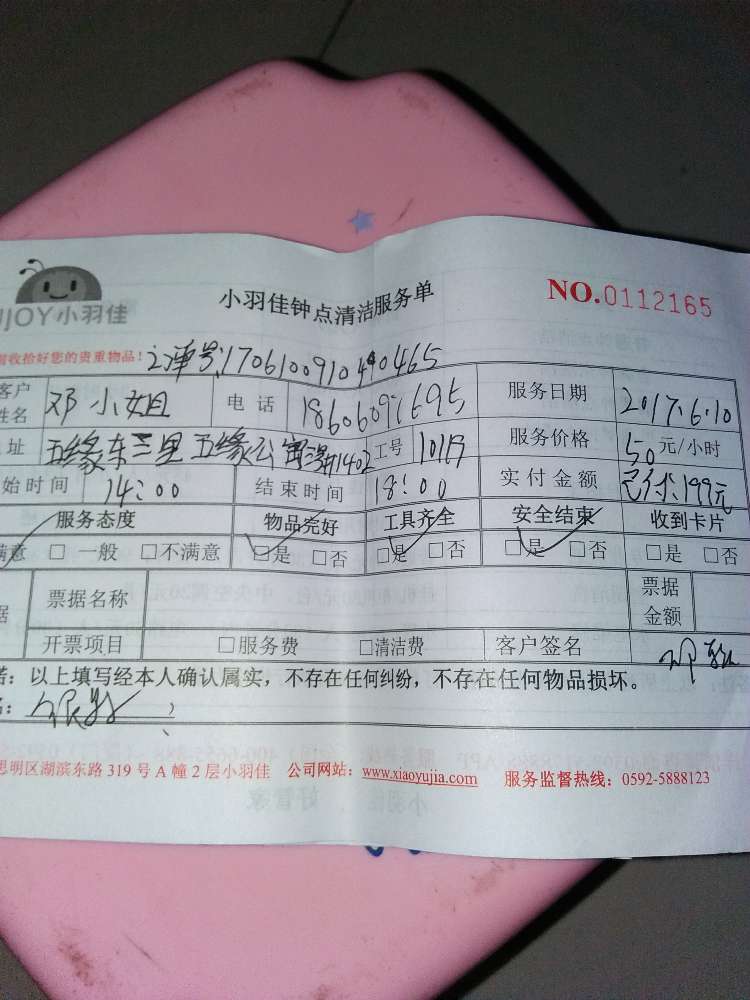 小羽佳钟点清洁服务单 NO.0112165
JOY小羽佳
收拾好您的贵重物品! 订单号:17061009104940465
客户姓名 邓小姐 电话 18606097695 服务日期 2017.6.10
址 五缘东三里五缘公寓 1402 工号 服务价格 50元/小时
始时间 14:00 结束时间 18:00 实付金额 已付:199元
服务态度 物品完好 工具齐全 安全结束 收到卡片
满意 □一般 □不满意 □是 □否 □是 □否 □是 □否 □是 □否
据 票据名称 票据金额
开票项目 □服务费 □清洁费 客户签名
诺:以上填写经本人确认属实,不存在任何纠纷,不存在任何物品损坏。
名:
思明区湖滨东路 319 号 A 幢 2 层小羽佳 公司网站:www.xiaoyujia.com 服务监督热线:0592-5888123